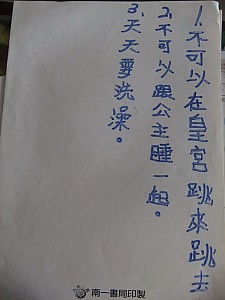 1.不可以在皇宮跳來跳去
2.不可以跟公主睡一起。
3.天天要洗澡。
南一書局印製